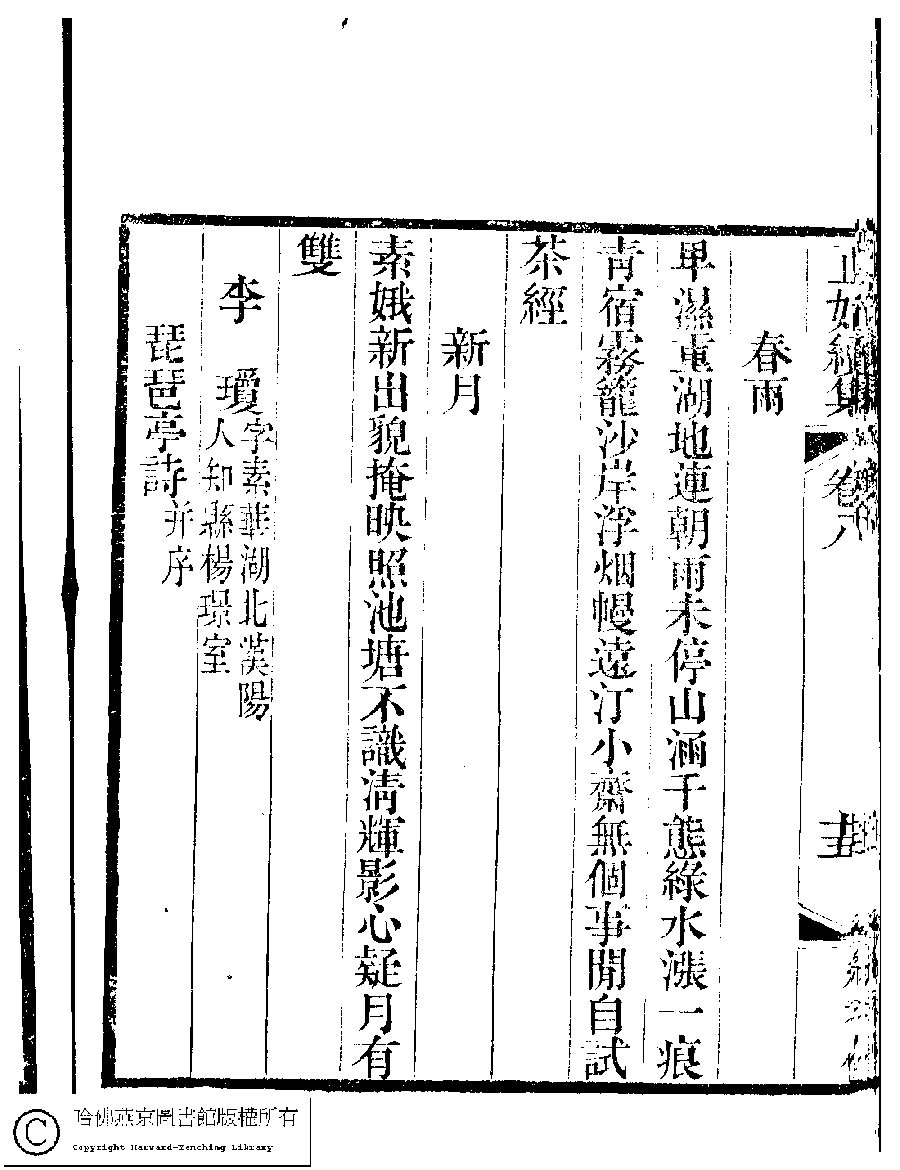 正始續集 卷八
春雨
卑濕重湖地連朝雨未停山涵千態綠水漲一痕
青宿霧籠沙岸浮烟幔遠汀小齋無個事閒自試
茶經
新月
素娥新出貌掩映照池塘不識清輝影心疑月有
雙
李 瓊字素華湖北漢陽
人知縣楊璟室
琵琶亭詩并序
哈佛燕京圖書館版權所有
Copyright Harvard-Yenching Library